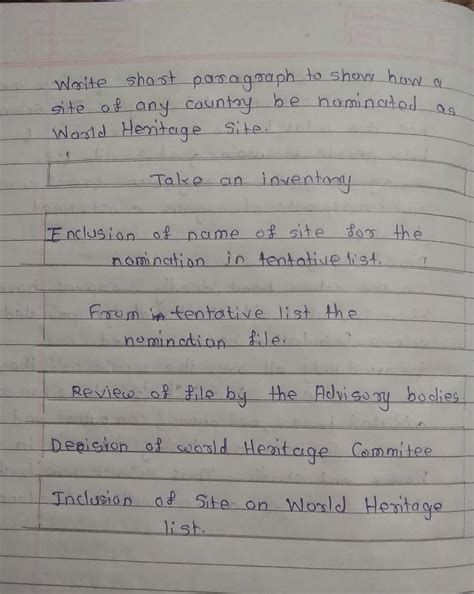 Write short paragraph to show how a
site of any country be nominated as
World Heritage Site.
Take an inventory
Inclusion of name of site for the
nomination in tentative list.
From in tentative list the
nomination file.
Review of file by the Advisory bodies.
Decision of world Heritage Commitee
Inclusion of Site on World Heritage
list.